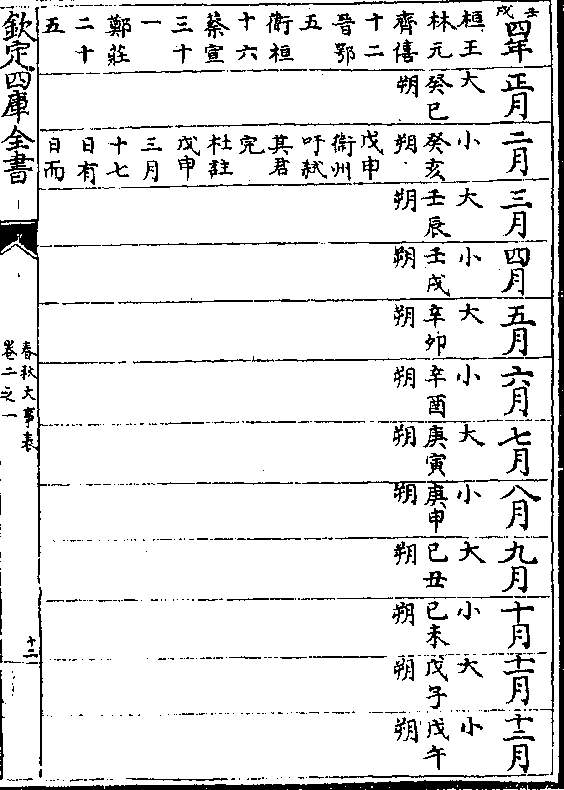 壬戌
四年
桓王
林元
齊僖
十二
晉鄂
五
衛桓
十六
蔡宣
三十
一
鄭莊
二十
五
正月
大
癸巳
朔
二月
小
癸亥
朔
戊申
衛州
吁弒
其君
完
杜註
戊申
三月
十七
日有
日而
三月
大
壬辰
朔
四月
小
壬戌
朔
五月
大
辛卯
朔
六月
小
辛酉
朔
七月
大
庚寅
朔
八月
小
庚申
朔
九月
大
己丑
朔
十月
小
己未
朔
十一月
大
戊子
朔
十二月
小
戊午
朔
欽定四庫全書
春秋大事表
卷二之一
十二